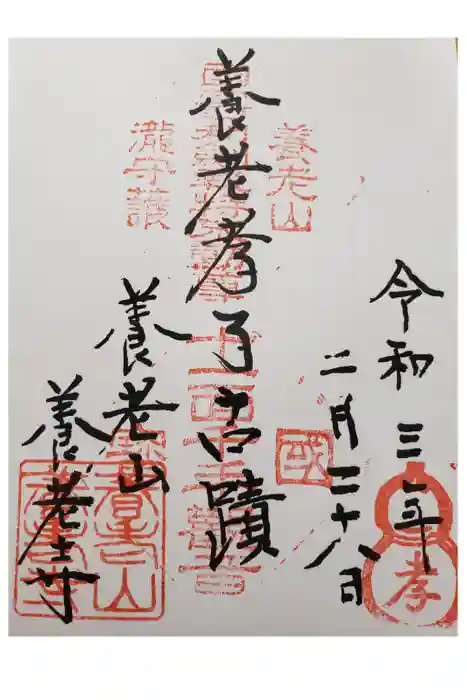 令和三年
二月二十八日
養老山
孝
養老孝子古蹟
瀧守護
養老山
養老寺